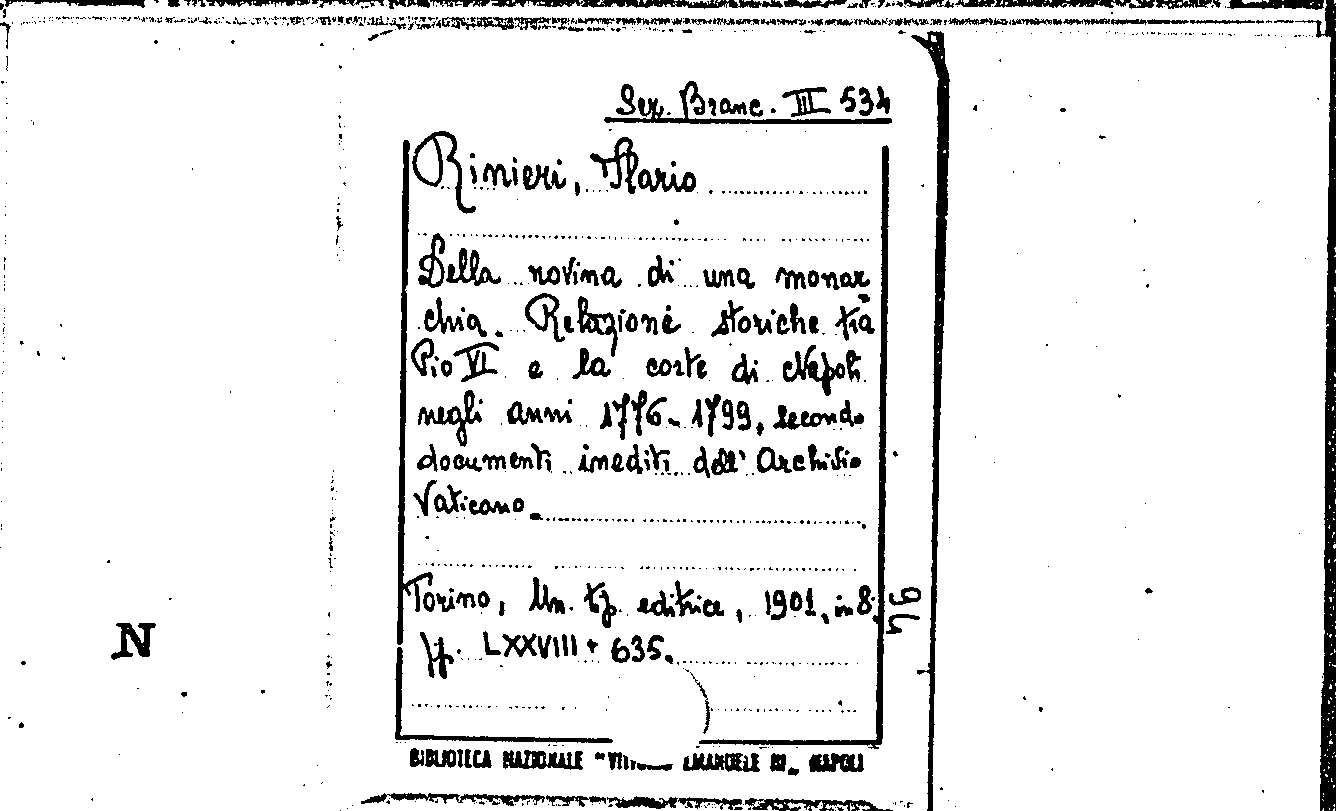 Sez. Branc. III 534
Rinieri, Ilario
Della rovina di una monar
chia. Relazione storiche tra
Pio VI e la corte di Napoli
negli anni 1776-1799, secondo
documenti inediti dell'Archivio
Vaticano.
Torino, Un. tip. editrice, 1901, in 8,
pp. LXXVIII + 635.
94
N
BIBLIOTECA NAZIONALE "VITT EMANUELE III" NAPOLI